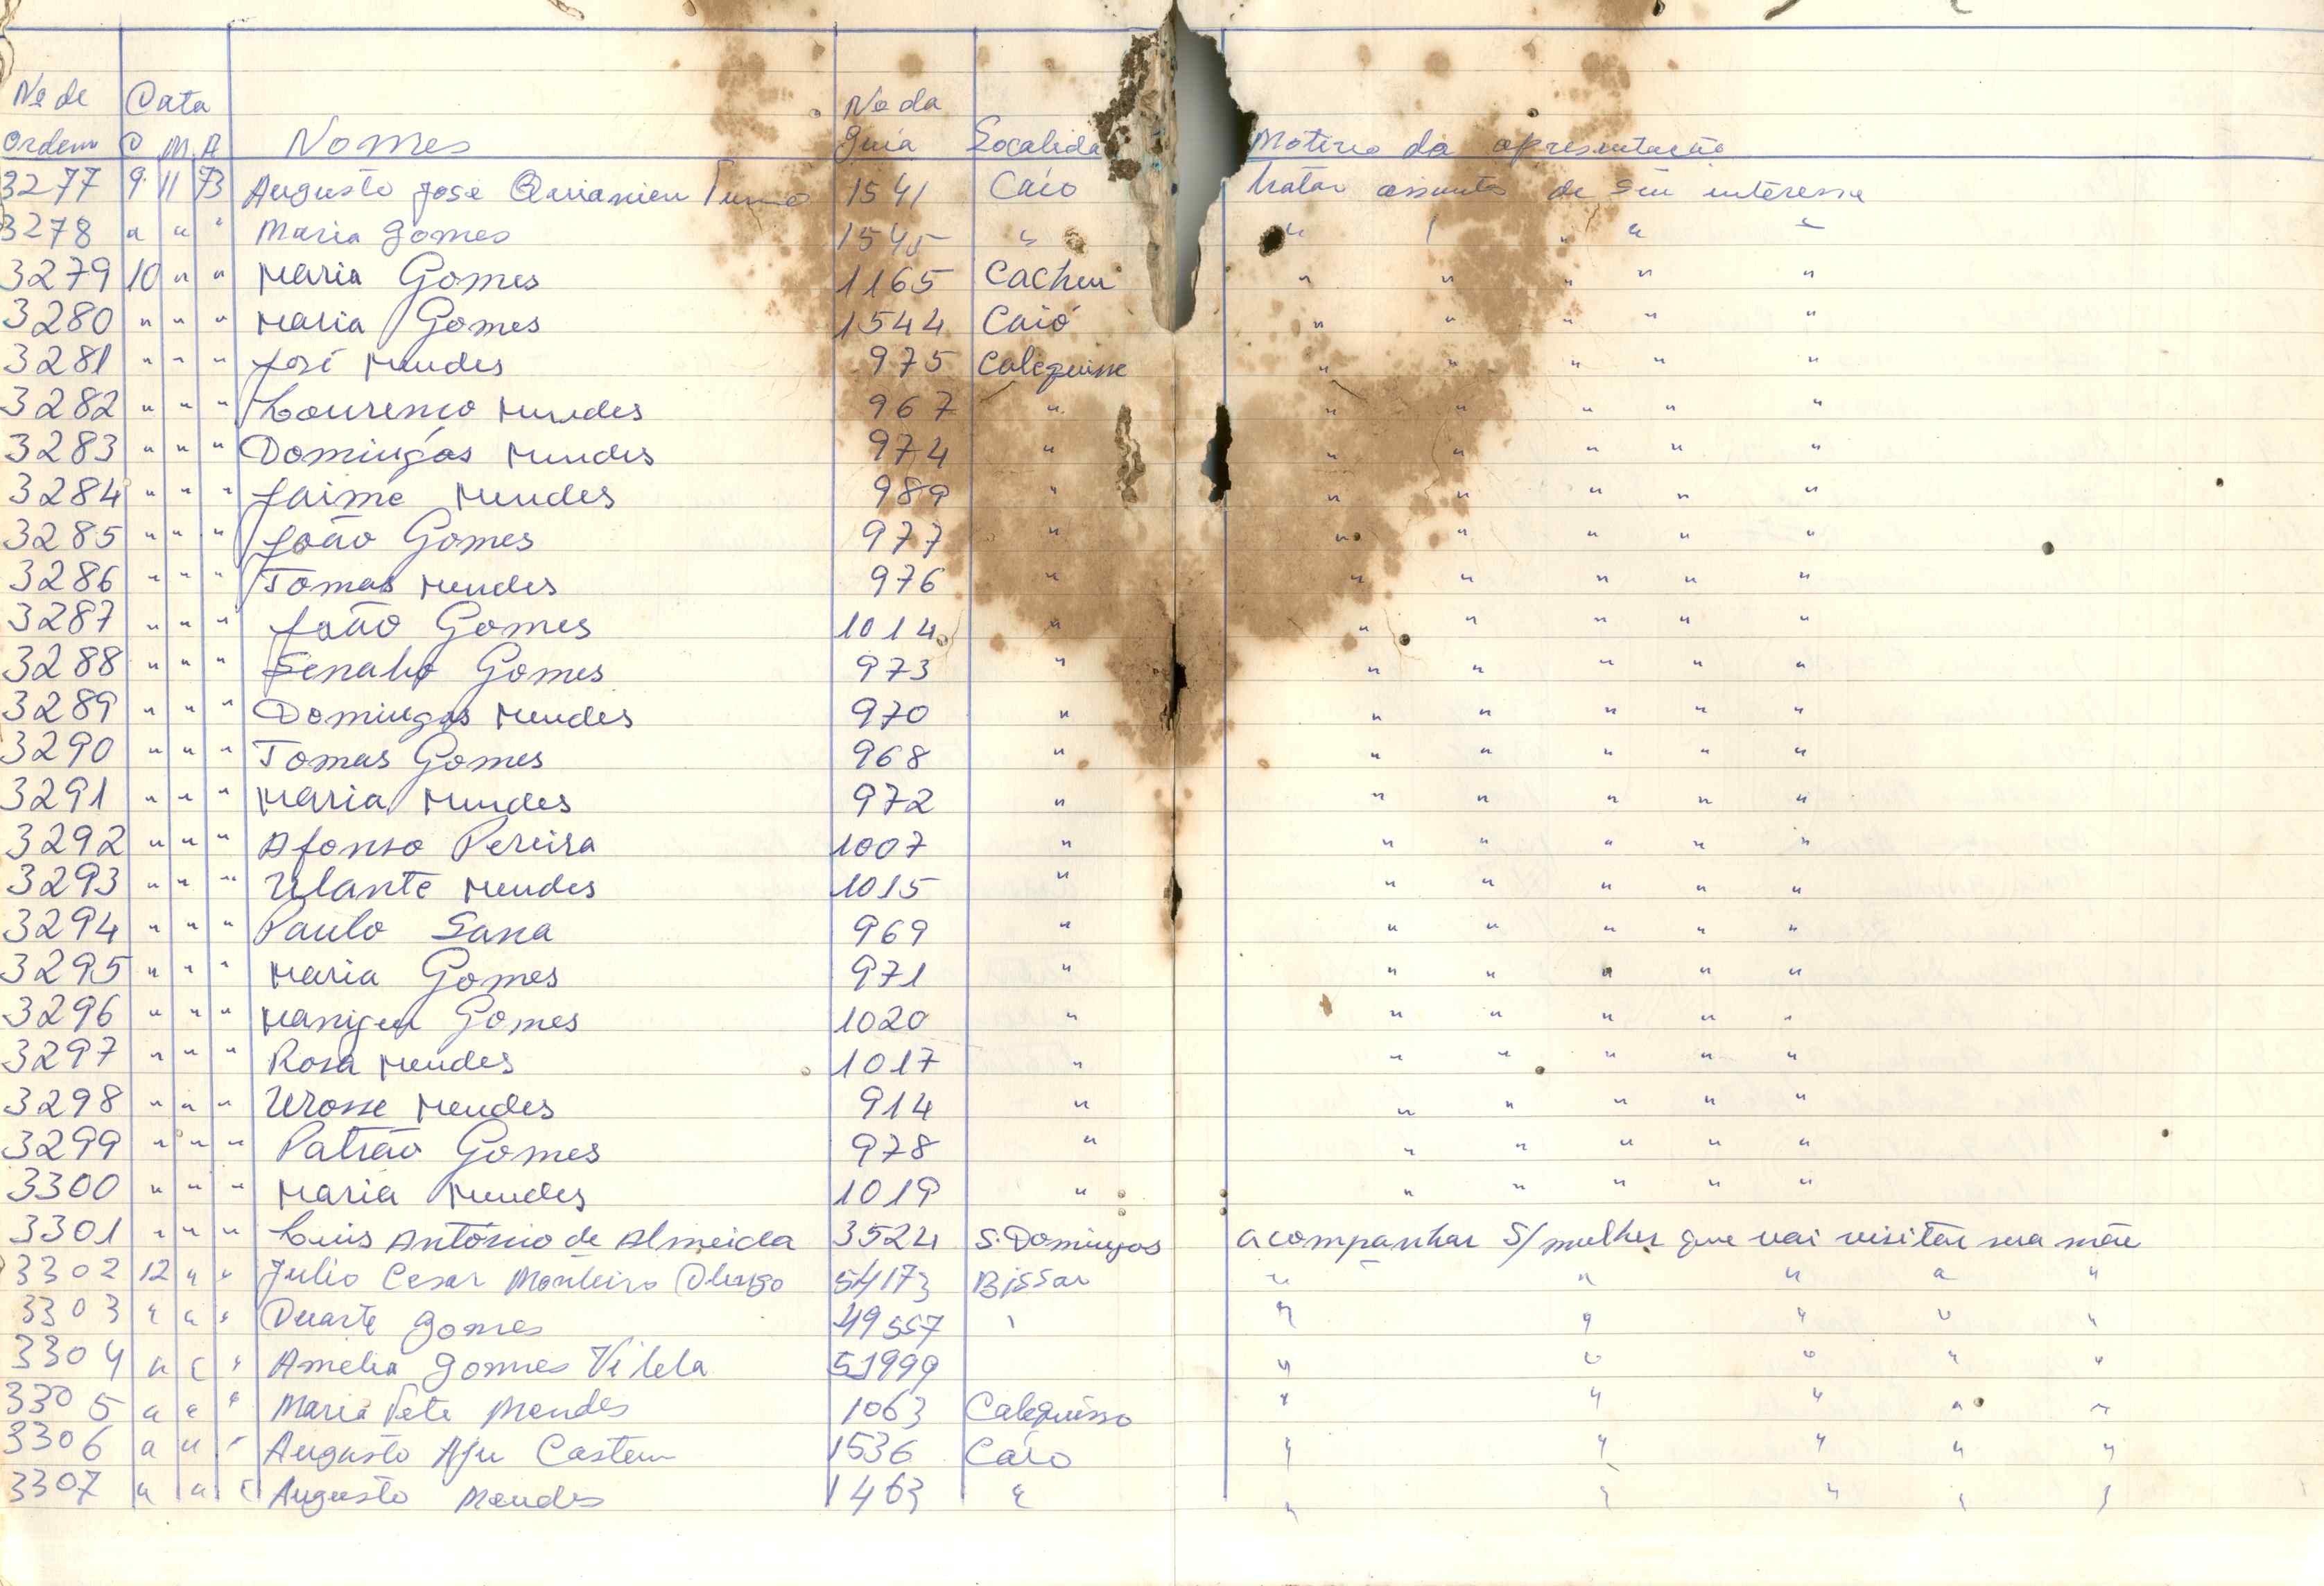 Nº de Data Nº da
Ordem D M A Nomes Guia Localida Motivo da apresentação
3277 9 11 73 Augusto José 1541 Caio tratar assunto de seu interesse
3278 " " " Maria Gomes 1545 " " " " " "
3279 10 " " Maria Gomes 1165 Cacheu " " " " "
3280 " " " Maria Gomes 1544 Caió " " " " "
3281 " " " José Mendes 975 Calequisse " " " " "
3282 " " " Lourenco Mendes 967 " " " " " "
3283 " " " Domingos Mendes 974 " " " " " "
3284 " " " Jaime Mendes 989 " " " " " "
3285 " " " João Gomes 977 " " " " " "
3286 " " " Tomas Mendes 976 " " " " " "
3287 " " " João Gomes 1014 " " " " " "
3288 " " " Gomes 973 " " " " " "
3289 " " " Domingos Mendes 970 " " " " " "
3290 " " " Tomas Gomes 968 " " " " " "
3291 " " " Maria Mendes 972 " " " " " "
3292 " " " Afonso Pereira 1007 " " " " " "
3293 " " " Ulante Mendes 1015 " " " " " "
3294 " " " Paulo Sana 969 " " " " " "
3295 " " " Maria Gomes 971 " " " " " "
3296 " " " Gomes 1020 " " " " " "
3297 " " " Rosa Mendes 1017 " " " " " "
3298 " " " Urosse Mendes 914 " " " " " "
3299 " " " Patrão Gomes 978 " " " " " "
3300 " " " Maria Mendes 1019 " " " " " "
3301 " " " Luis António de Almeida 3524 S. Domingos acompanhar S/ mulher que vai visitar sua mãe
3302 12 " " Julio Cesar Monteiro 54173 Bissau " " " " "
3303 " " " Duarte Gomes 49557 " " " " " "
3304 " " " Amelia Gomes Vilela 51999 " " " " "
3305 " " " Maria Mendes 1063 Calequisso " " " " "
3306 " " " Augusto 1536 Caio " " " " "
3307 " " " Augusto Mendes 1463 " " " " " "